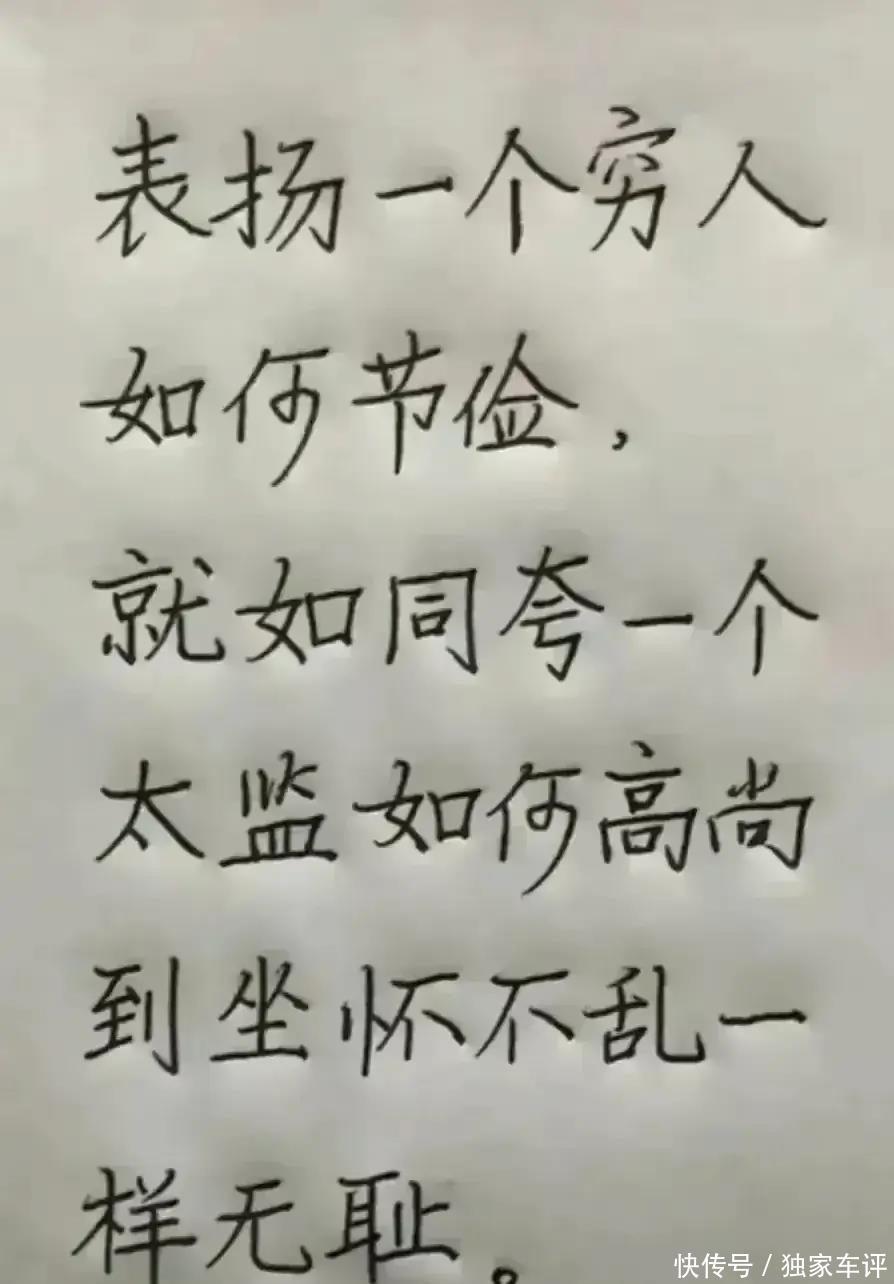 表扬一个穷人
如何节俭，
就如同夸一个
太监如何高尚
到坐怀不乱一
样无耻。
快传号/独家车评